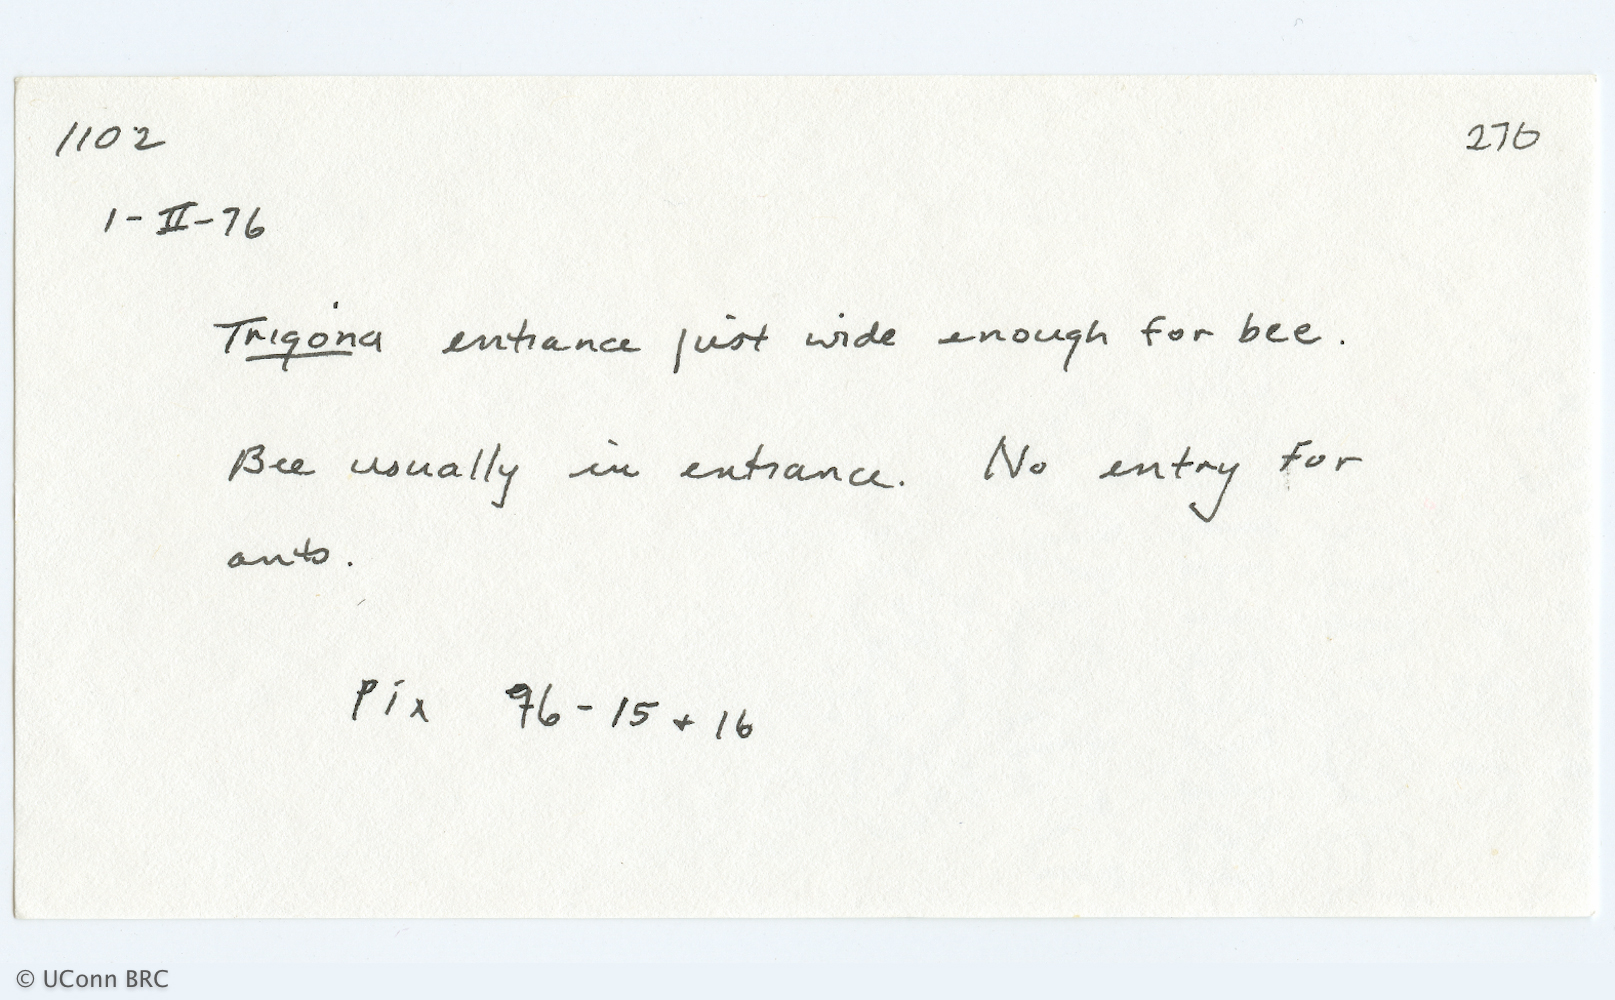 1102 276
1-II-76
Trigona entrance just wide enough for bee.
Bee usually in entrance. No entry for
ants.
Pix 76-15 + 16
© UConn BRC